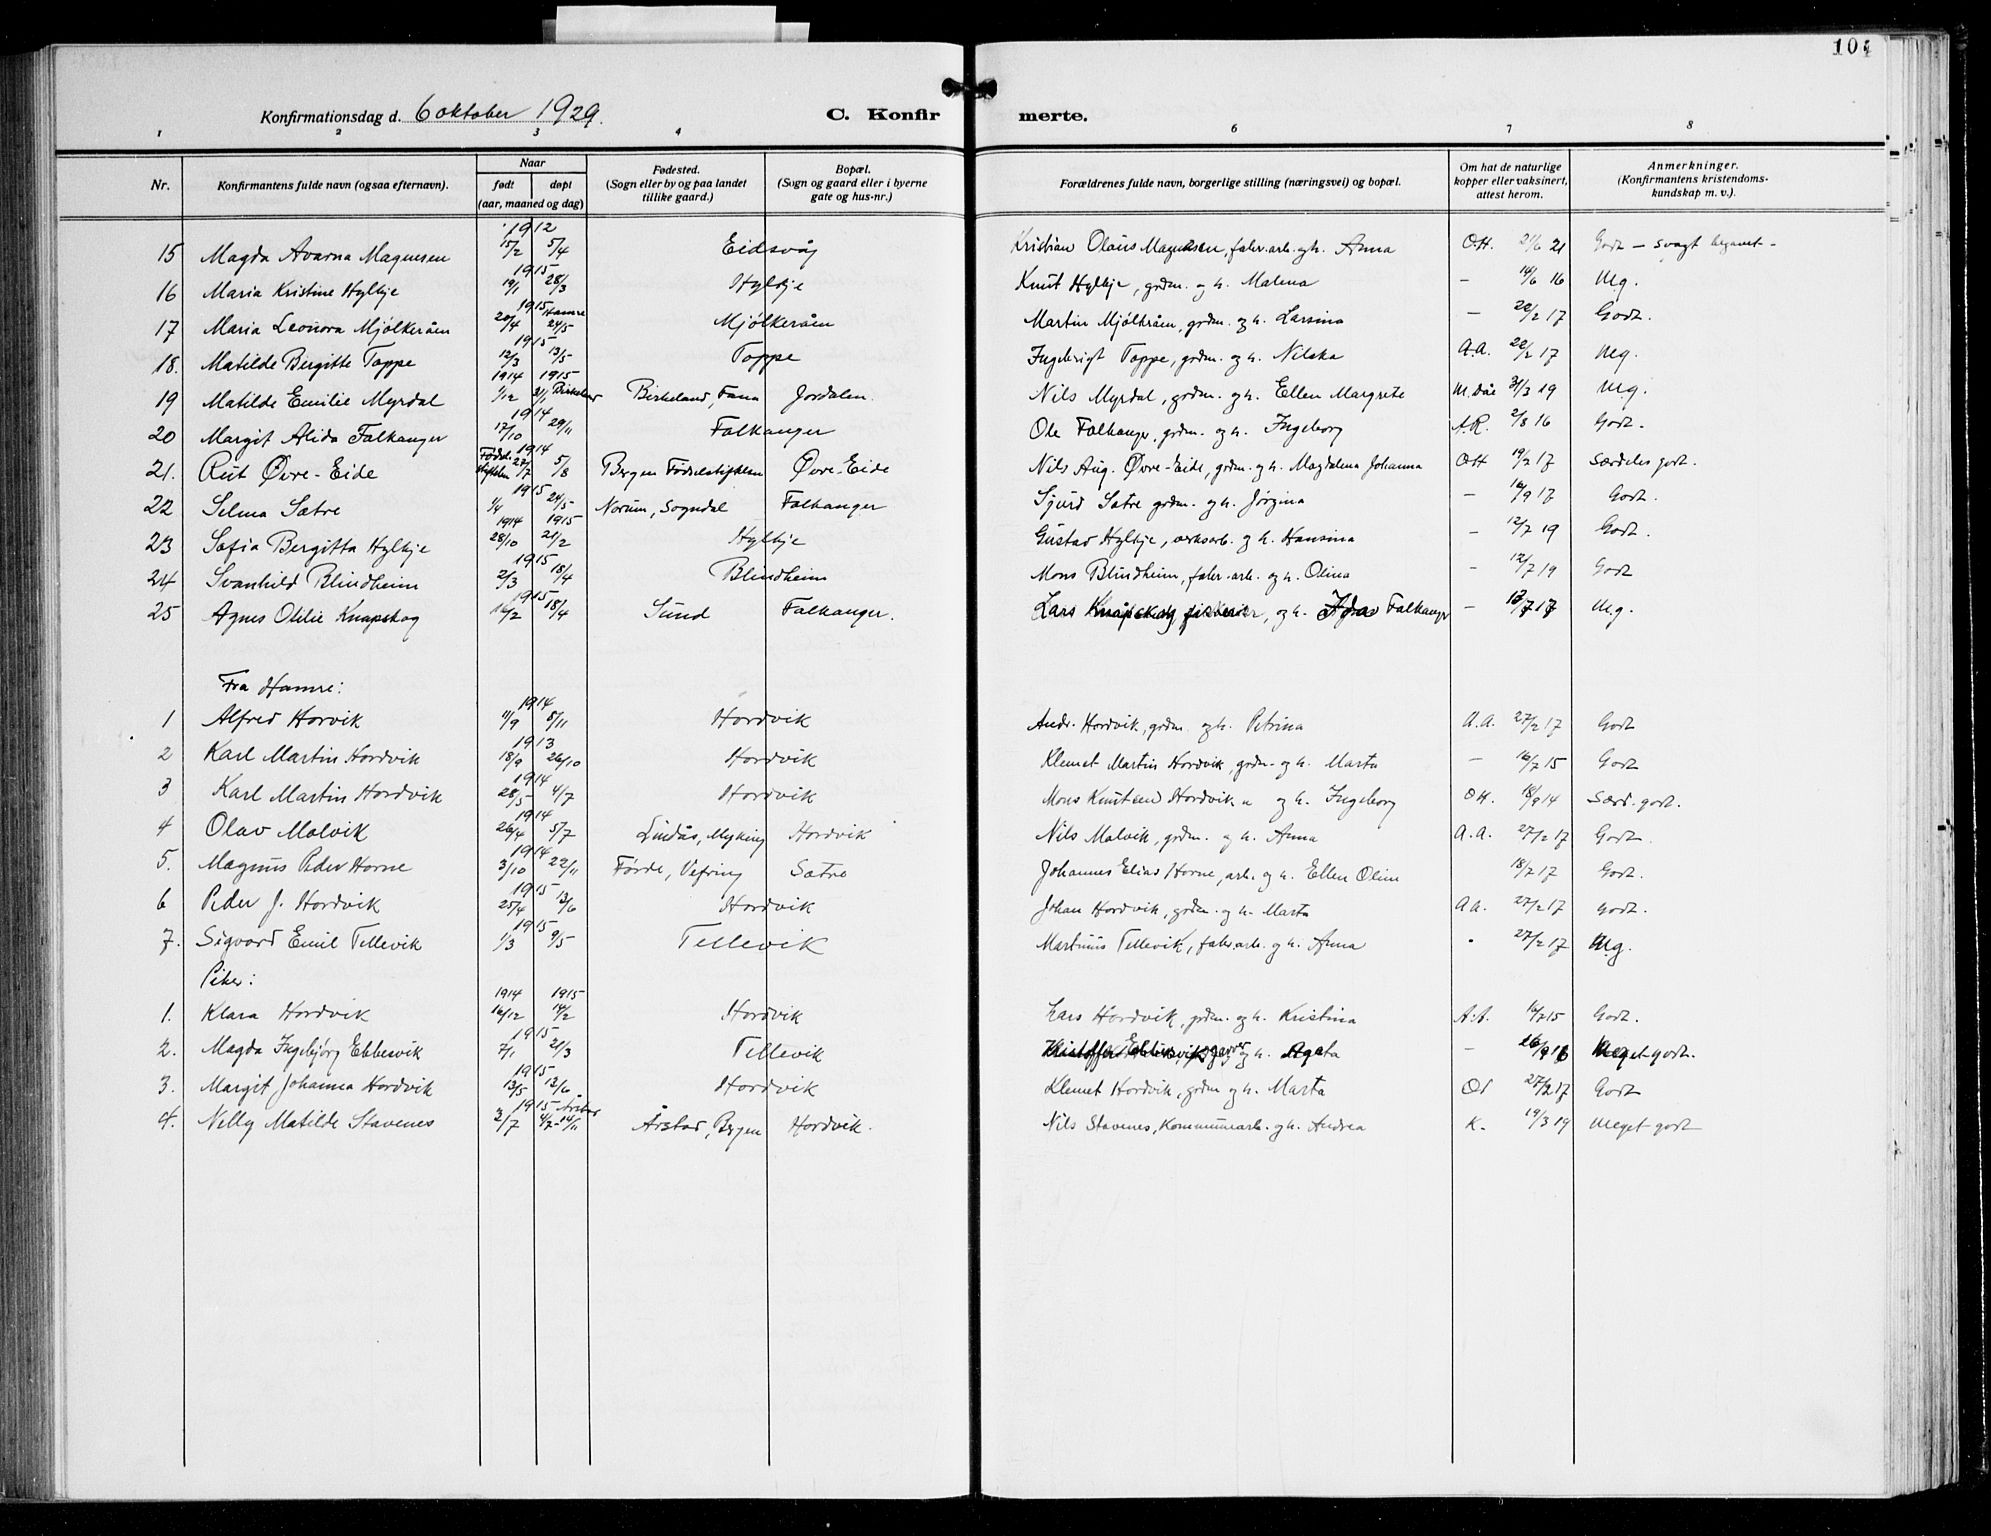 104
Konfirmationsdag d. 6 oktober 1929.
C. Konfirmerte.
1 2 3 4 6 7 8
Nr. Konfirmantens fulde navn (ogsaa efternavn). Naar født døpt (aar, maaned og dag) Fødested. (Sogn eller by og paa landet tillike gaard.) Bopæl. (Sogn og gaard eller i byerne gate og hus-nr.) Forældrenes fulde navn, borgerlige stilling (næringsvei) og bopæl. Om hat de naturlige kopper eller vaksinert, attest herom. Anmerkninger. (Konfirmantens kristendomskundskap m. v.).
1912
15 Magda Avarna Magnesen 15/2 5/4 Eidsvåg Kristian Olaus Magnesen, fabr. arb. og h. Anna OH. 21/6 21 Godt – svagt begavet –
1915
16 Maria Kristine Hylkje 19/1 28/3 Hylkje Knut Hylkje, grdm. og h. Malena – 14/6 16 M.g.
1915 Hamre
17 Maria Leonora Mjølkeråen 20/4 24/5 Mjølkeråen Martin Mjølkråen, grdm. og h. Larsina – 22/2 17 Godt.
1915
18. Matilde Birgitte Toppe 12/3 13/5 Toppe Ingebrigt Toppe, grdm. og h. Nilska A.A. 22/2 17 M.g.
1914 1915
19 Matilde Emilie Myrdal 1/12 31/1 Birkeland Birkeland, Fana Jordalen. Nils Myrdal, grdm. og h. Ellen Margrete M. Dåe 31/3 19 M.g.
1914
20 Margit Alida Falkanger 17/10 29/11 Falkanger Ole Falkanger, grdm. og h. Ingeborg A.R. 2/8 16 Godt.
Fødsl. 1914
21. Rut Øvre-Eide stiftelsen 27/7 5/8 Bergen Fødselsstiftelsen Øvre-Eide Nils Aug. Øvre-Eide, grdm. og h. Magdalena Johanna OH 19/2 17 Særdeles godt.
1915
22 Selma Sætre 1/4 24/5 Norum, Sogndal Falkanger Sjurd Sætre grdm. og h. Jørgina – 16/9 17 Godt.
1914 1915
23 Sofia Bergitta Hylkje 28/10 21/2 Hylkje Gustav Hylkje, verksarb. og h. Hansina – 12/7 19 Godt.
1915
24 Svanhild Blindheim 2/3 18/4 Blindheim Mons Blindheim, fabr. arb. og h. Olina – 12/7 19 Godt
1915
25 Agnes Otilie Knapskog 16/2 18/4 Sund Falkanger. Lars Knapskog, fisker, og h. Falkanger – 17/7 17 M.g.
Fra Hamre:
1914
1 Alfred Horvik 11/9 8/11 Hordvik Andr. Hordvik, grdm. og h. Petrina A.A. 27/2 17 Godt
1913
2 Karl Martin Hordvik 18/9 26/10 Hordvik Klemet Martin Hordvik, grdm. og h. Marta – 16/7 15 Godt
1914
3 Karl Martin Hordvik 28/5 4/7 Hordvik Mons Knutsen Hordvik og h. Ingeborg OH. 18/9 14 Særd. godt.
1914
4 Olav Molvik 26/4 5/7 Lindås, Myking Hordvik Nils Molvik, grdm. og h. Anna A.A. 27/2 17 Godt.
1914
5. Magnus Peder Horne 3/10 22/11 Førde, Vefring Sætre Johannes Elias Horne, arb. og h. Ellen Oline 18/7 17 Godt.
1915
6 Peder J. Hordvik 25/4 13/6 Hordvik Johan Hordvik, grdm. og h. Marta AA. 27/2 17 Godt.
1915
7. Sigvard Emil Tellevik 1/3 9/5 Tellevik Martinus Tellevik, fabr. arb. og h. Anna 27/2 17 M.g.
Piker:
1914 1915
1. Klara Hordvik 16/12 14/2 Hordvik Lars Hordvik, grdm. og h. Kristina A.A. 16/7 15 Godt.
1915
2. Magda Ingebjørg Ebbesvik 7/1 21/3 Tellevik Kristoffer Ebbesvik, og h. Agata – 26/9 16 Meget godt.
1915
3. Margit Johanna Hordvik 13/5 13/6 Hordvik Klemet Hordvik, grdm og h. Marta 27/2 17 Godt
1915 Årstad
4. Nelly Matilde Stavenes 2/7 4/7-14/11 Årstad, Bergen Hordvik. Nils Stavenes, Kommunearb. og h. Andrea K. 19/3 19 Meget godt